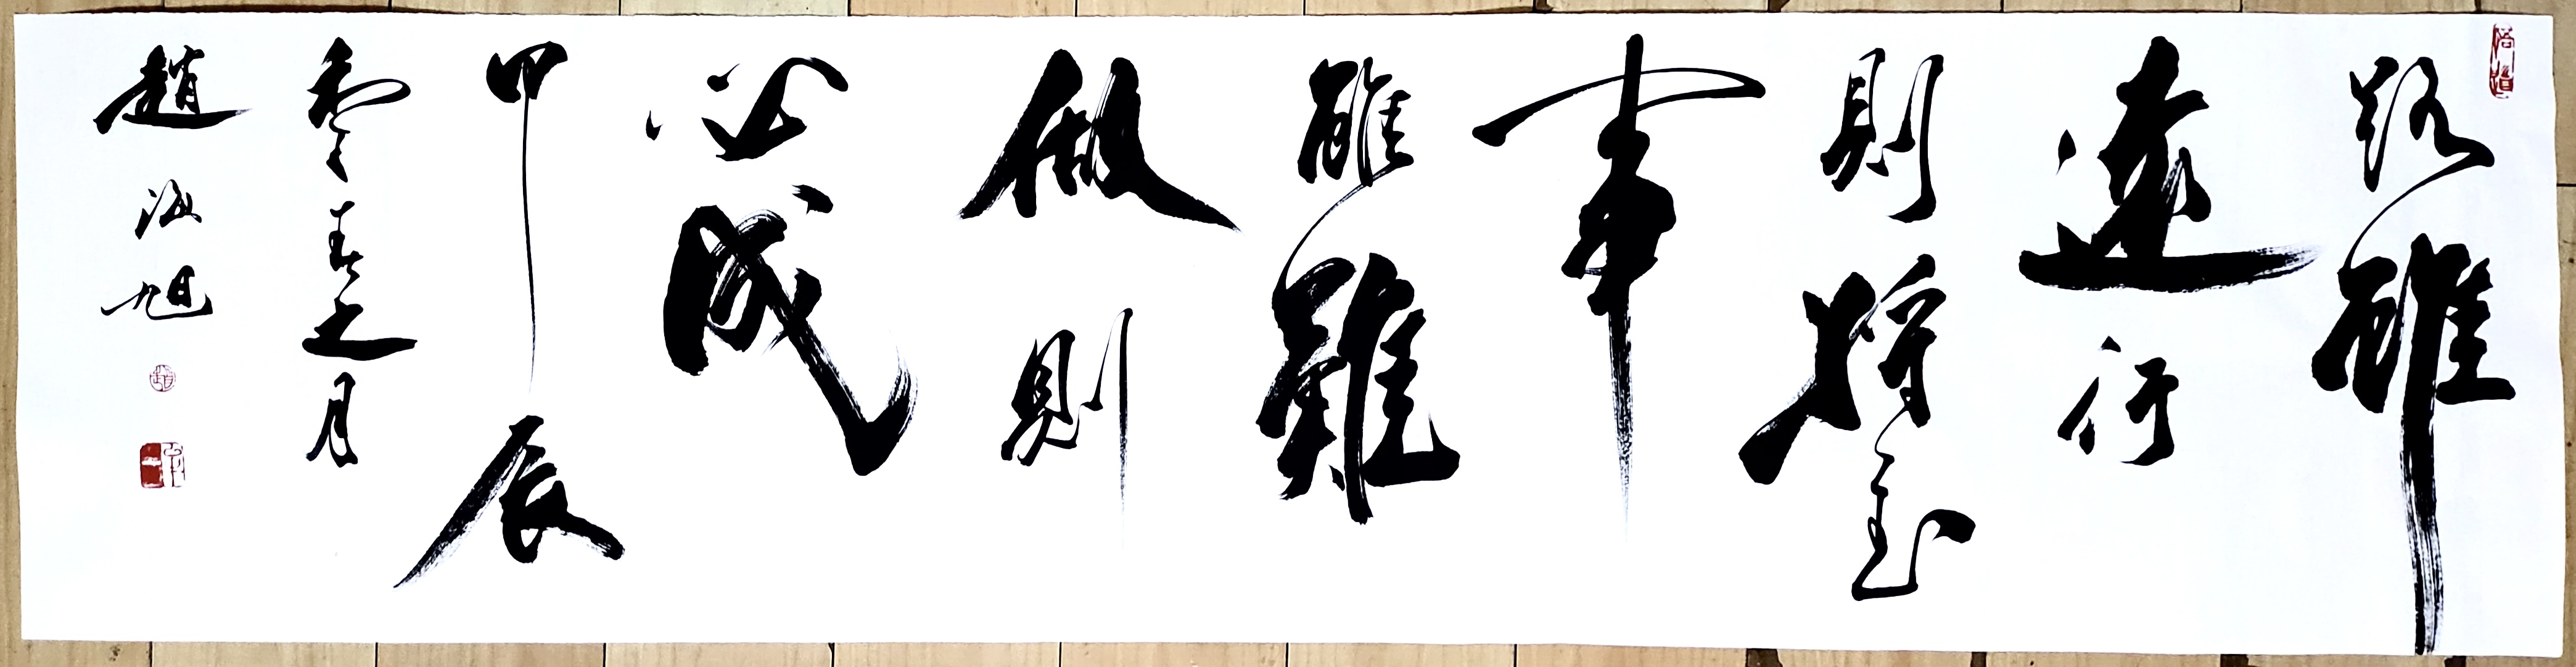 路雖
遠行
則將至
事
雖難
做則
必成
甲辰
季春之月
趙海旭